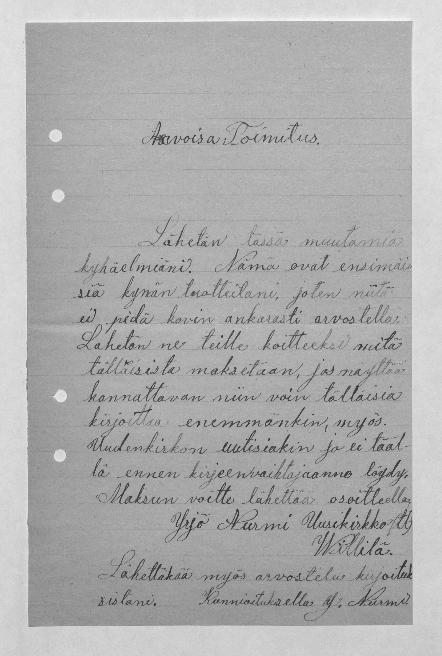 Arvoisa Toimitus.
Lähetän tässä muutamia
kyhäelmiäni. Nämä ovat ensimäi-
siä kynän tuotteitani, joten niitä
ei pidä kovin ankarasti arvostella.
Lähetän ne teille koitteeksi mitä
tälläisistä maksetaan, jos näyttää
kannattavan niin voin tälläisiä
kirjoittaa enemmänkin, myös.
Uudenkirkon uutisiakin jo ei tääl-
lä ennen kirjeenvaihtajaanne löydy.
Maksun voitte lähettää osoitteella
Yrjö Nurmi Uusikirkko
Lähettäkää myös arvostelu kirjoituk
sistani. Kunnioituksella Y. Nurmi